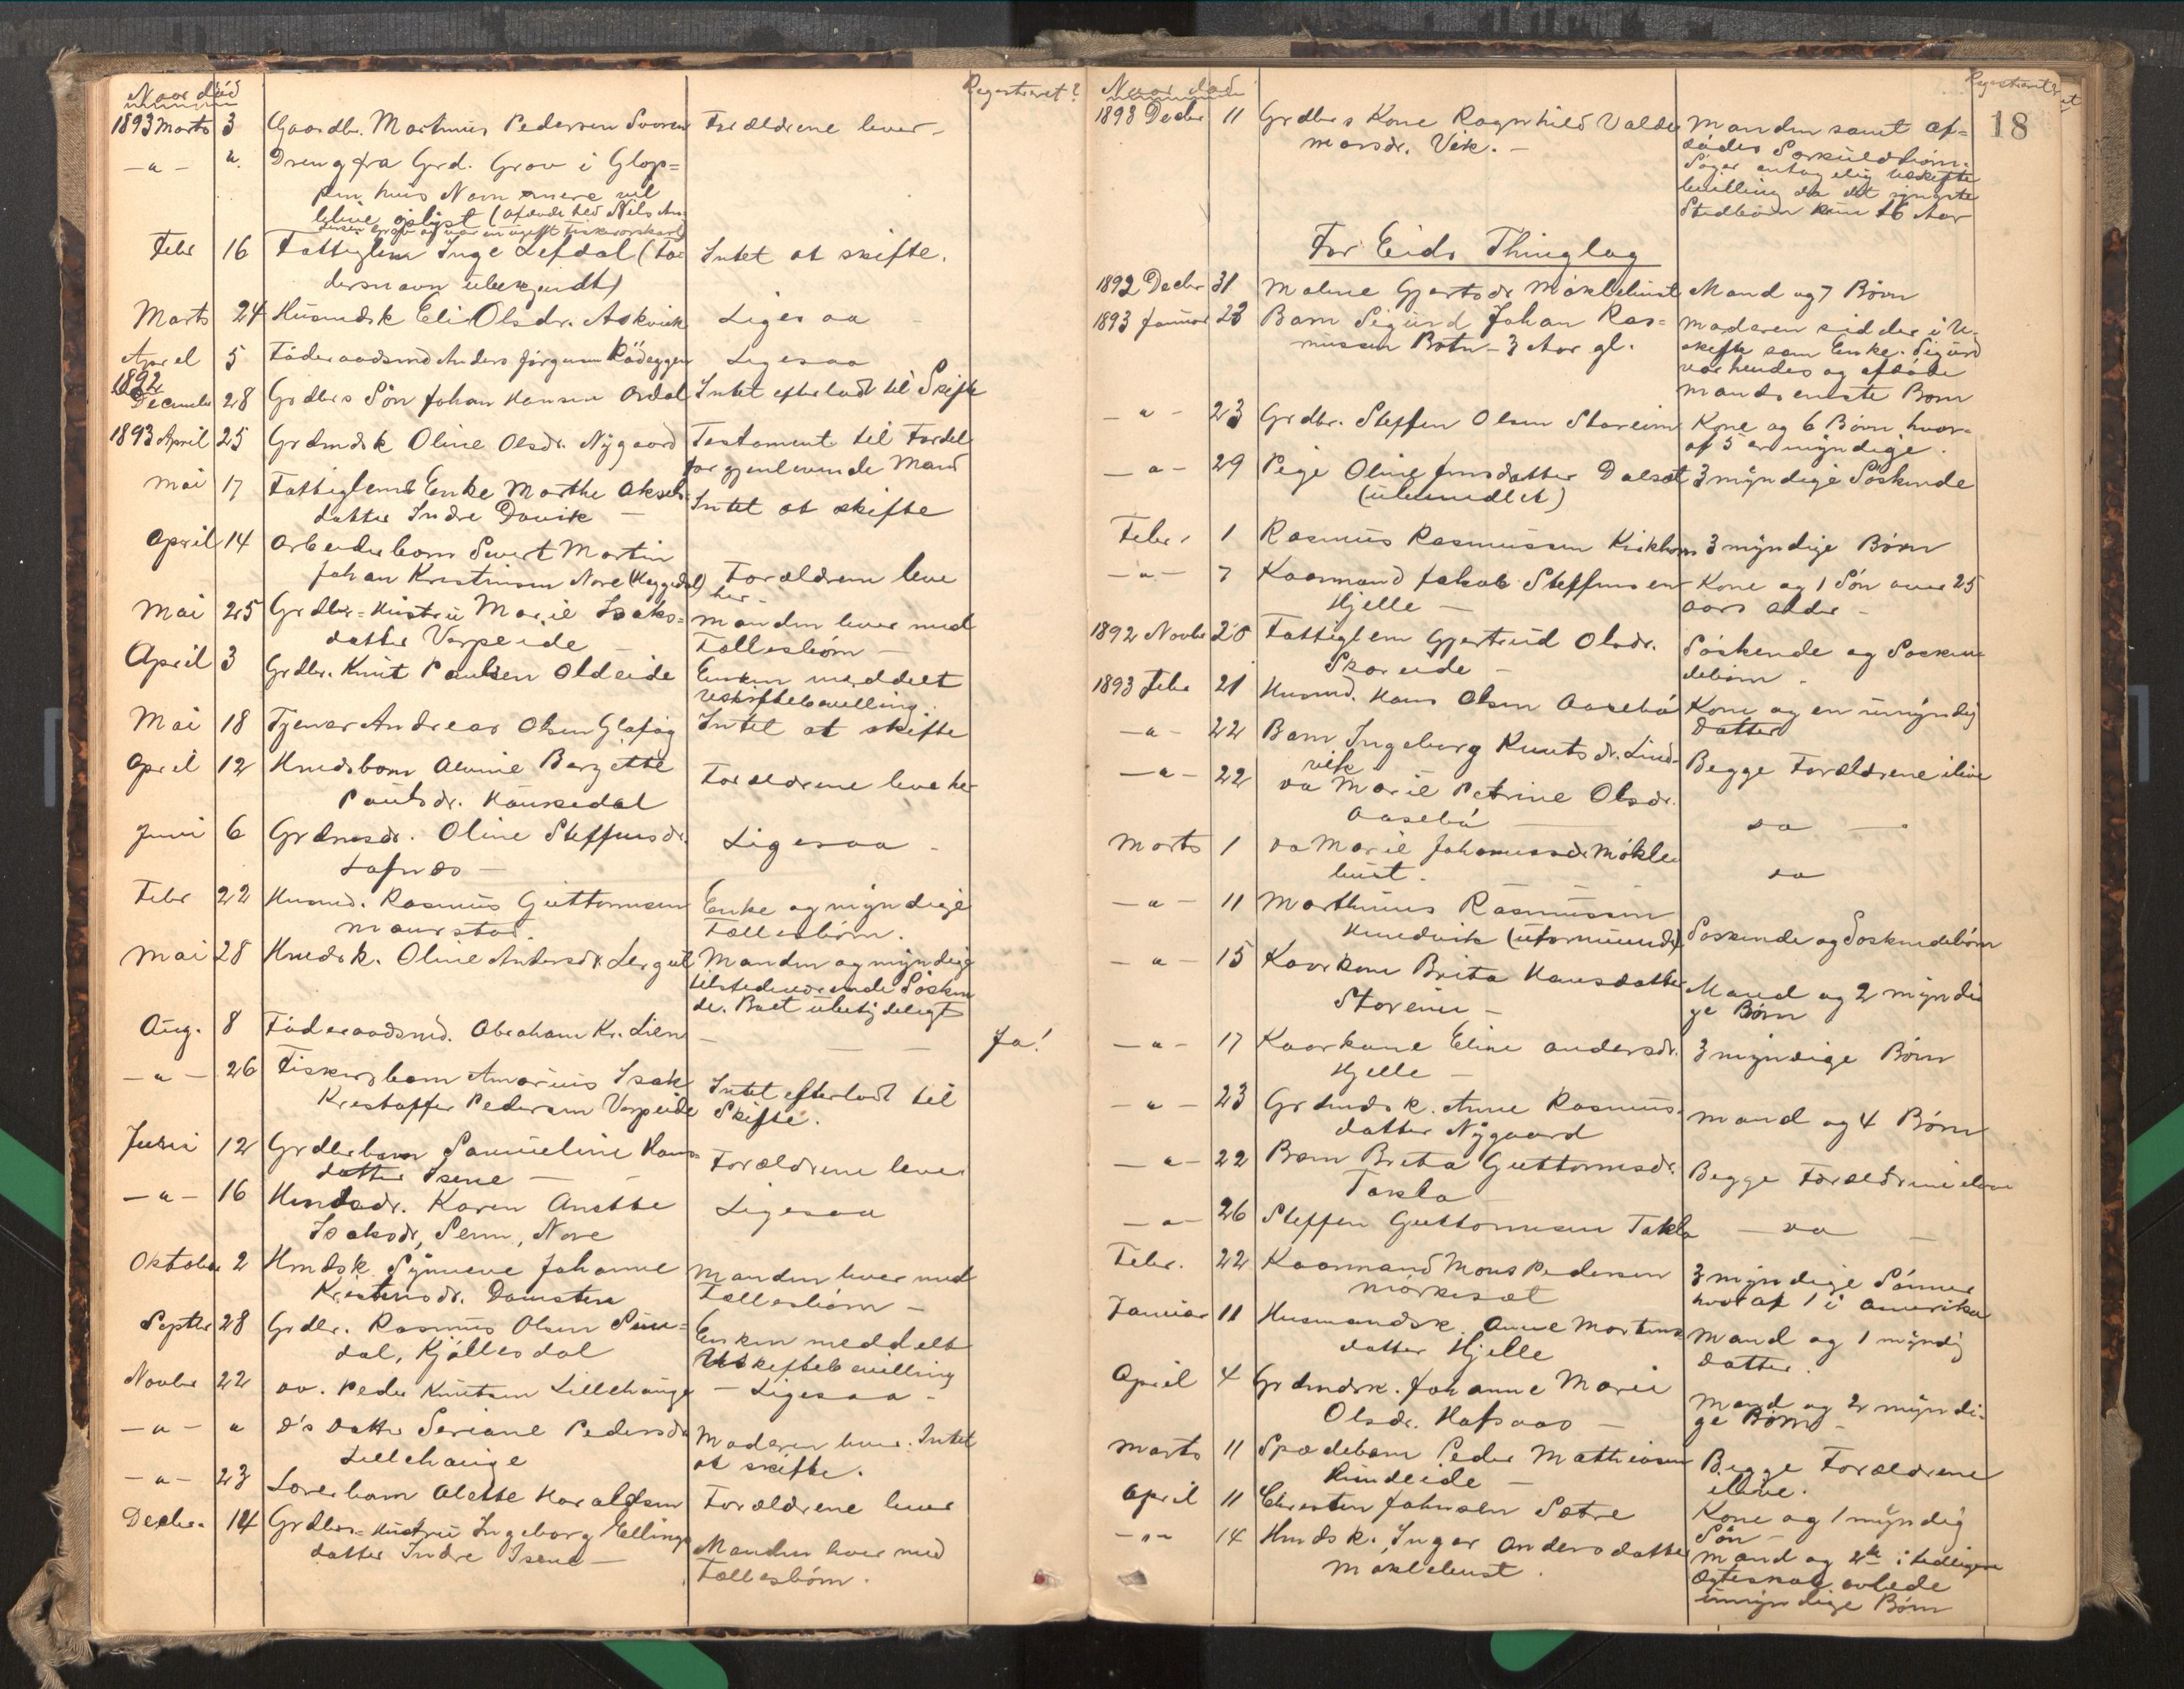 Naar död
Registreret?
1893 Marts 3 Gaardbr. Mathias Pedersen Forældrene lever -
- " - " Dreng fra Grd. Grov i Glop=
pen hvis Navn mere vil
blive oplyst (
Febr 16 Fattiglem Inge Lefdal (Fa= Intet at skifte.
dersnavn ubekjendt)
Marts 24 Husmdsk Eli Olsdr. Askvik Ligesaa
April 5 Föderaadsmd Anders Jörgensen Rödeggen Ligesaa
1892
December 28 Grdbrs Sön Johan Hansen Ardal Intet efterladt til Skifte
1893 April 25 Grdmdsk Oline Olsdr. Nygaard Testament til Fordel
for gjenlevende Mand
Mai 17 Fattiglem Enke Marthe Aksels=
datter Indre Davik - Intet at skifte
April 14 Arbeiderbarn Sivert Martin
Johan Kristensen Nore (Heggedal) Forældrene leve
her -
Mai 25 Grdbr=Hustru Marie Isaks= Manden lever med
datter Vorpeide - Fællesbörn -
April 3 Grdbr. Knut Paulsen Oldeide Enken meddelt
Uskiftebevilling.
Mai 18 Tjener Andreas Olsen Glafög Intet at skifte
April 12 Hmdsbarn Alvine Bergitte
Paulsdr. Haukedal Forældrene leve her
Juni 6 Grdmsdr. Oline Steffensdr. Ligesaa -
Lofnæs -
Febr 22 Husmd. Rasmus Guttormsen Enke og myndige
Maurstad. Fællesbörn.
Mai 28 Hmdsk. Oline Andersdr. Lergul Manden og myndige
tilstedeværende Sösken
de. Boet ubetydeligt
Aug. 8 Föderaadsmd. Abraham Kr. Lien - - - Ja!
- " - 26 Fiskerbarn Amarius Isak Intet efterladt til
Kristoffer Pedersen Vorpeide Skifte.
Juni 12 Grdbrbarn Samueline Hans=
datter Isene - Forældrene lever
- " - 16 Hmdsdr. Karen Anette Ligesaa
Isaksdr, Senn, Nore
Oktober 2 Hmdsk Synneve Johanne Manden lever med
Kristensdr. Domsten Fællesbörn -
Septbr 28 Grdbr. Rasmus Olsen Sun= Enken meddelt
dal, Kjöllesdal Uskiftebevilling
Novbr 22 do. Peder Knutsen Lillehauge - Ligesaa -
- " - " D's Datter Seriane Pedersdr Moderen lever. Intet
Lillehauge at skifte.
- " - 23 Lovsbarn Alette Haraldsen Forældrene lever
Decbr. 14 Grdbr=Hustru Ingeborg Ellings
datter Indre Isene - Manden lever med
Fællesbörn.
Naar död
18
1893 Decbr 11 Grdbrs Kone Ragnhild Valde Manden samt af=
marsdr. Vik. - dödes Særkuldbörn.
Söger antagelig Uskifte
bevilling da det yngste
Stedbarn kun 16 Aar
For Eids Thinglag
1892 Decbr 31 Maline Gjertsdr Möklebust Mand og 7 Börn
1893 Januar 23 Barn Sigurd Johan Ras= Moderen sidder i U-
mussen Botn - 3 Aar gl. skifte som Enke. Sigurd
var hendes og afdöde
Mands eneste Barn
- " - 23 Grdbr. Steffen Olsen Stareim Kone og 6 Börn hvor-
af 5 er myndige.
- " - 29 Pige Oline Jensdatter Dalsæt 3 myndige Söskende
(ubemidlet)
Febr. 1 Rasmus Rasmussen Kirkhorn 3 myndige Börn
- " - 7 Kaarmand Jakob Steffensen Kone og 1 Sön over 25
Hjelle - Aars Alder -
1892 Novbr 20 Fattiglem Gjertrud Olsdr. Söskende og Sösken
Skareide - debörn.
1893 Febr 21 Husmd. Hans Olsen Aasebö Kone og en umyndig
Datter
- " - 22 Barn Ingeborg Knutsdr. Lind=
vik Begge Forældrene ilive
- " - 22 do Marie Petrine Olsdr.
Aasebö do -
Marts 1 do Marie Johannesdr Mökle
bust. do
- " - 11 Marthinus Rasmussen
Hundvik (uformuende) Söskende og Söskendebörn
- " - 15 Kaarkone Brita Hansdatter Mand og 2 myndi
Stareim - ge Börn
- " - 17 Kaarkone Eline Andersdr. 3 myndige Börn
Hjelle -
- " - 23 Grdmdsk. Anne Rasmus=
datter Nygaard Mand og 4 Börn
- " - 22 Barn Brita Guttormsdr.
Takla Begge Forældrene ilive
- " - 26 Steffen Guttormsen Takla - do -
Febr. 22 Kaarmand Mons Pedersen 3 myndige Sönner
Mörkesæt hvoraf 1 i Amerika
Januar 11 Husmandsk. Anne Mortens Mand og 1 myndig
datter Hjelle Datter.
April 4 Grdmdsk. Johanne Marie
Olsdr. Hafsaas - Mand og 2 myndi-
ge Börn -
Marts 11 Spædebarn Peder Mathiasen Begge Forældrene
Rundeide - ilive.
April 11 Christen Johnsen Sætre Kone og 1 myndig
Sön -
- " - 14 Hmdsk. Inger Andersdatter Mand og 2de i tidligere
Möklebust. Ægteskab avlede
umyndige Börn